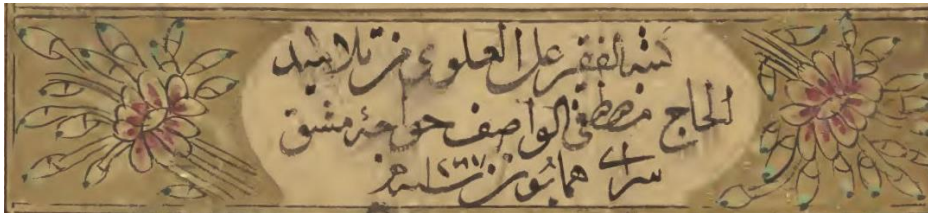 كتبه الفقير علي العلوي من تلاميذ
الحاج مصطفى الواصف خواجهٔ مشق
سراى همايون سنه